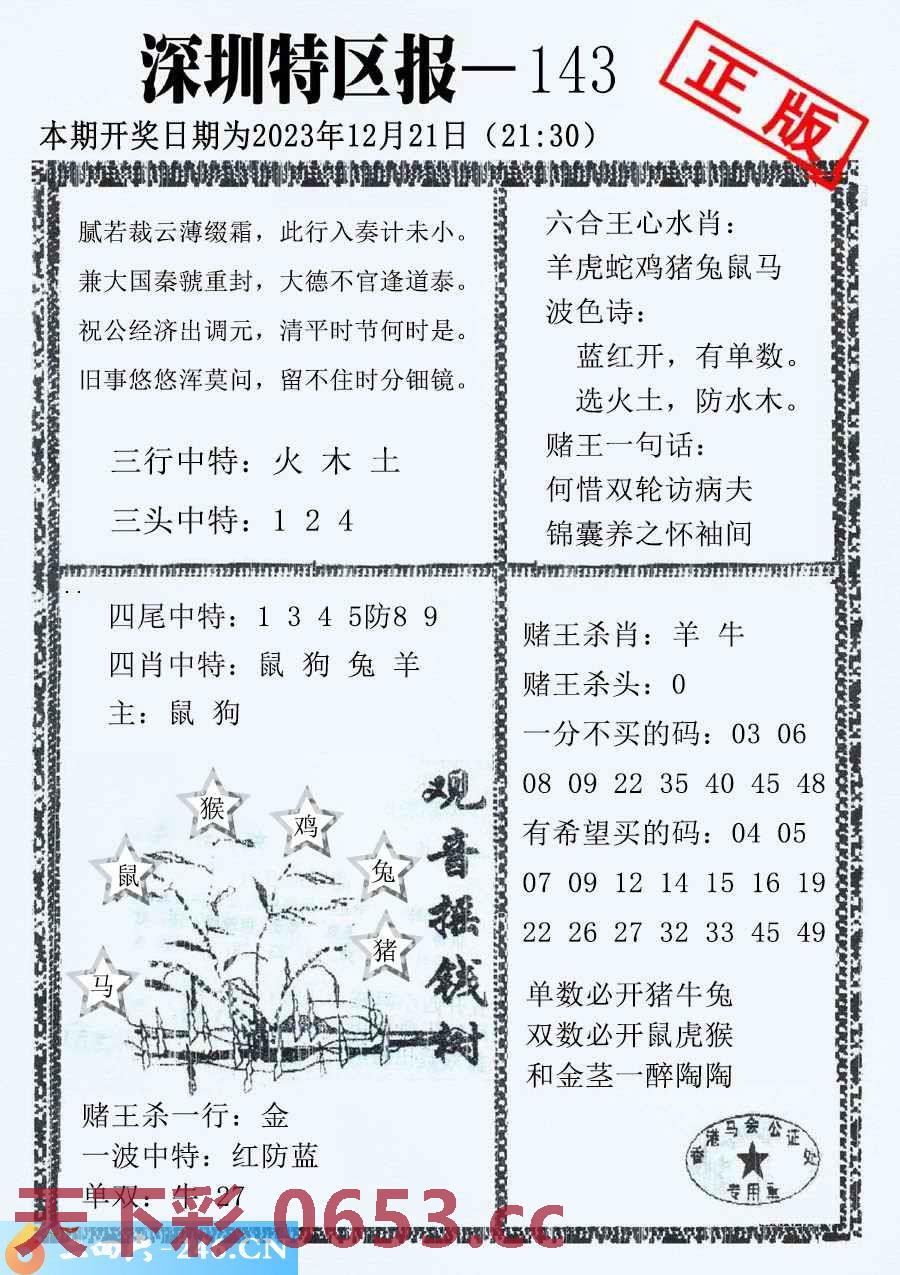 深圳特区报—143
正版
本期开奖日期为2023年12月21日（21:30）
腻若裁云薄缀霜，此行入奏计未小。
兼大国秦虢重封，大德不官逢道泰。
祝公经济出调元，清平时节何时是。
旧事悠悠浑莫问，留不住时分钿镜。
三行中特：火 木 土
三头中特：1 2 4
六合王心水肖：
羊虎蛇鸡猪兔鼠马
波色诗：
蓝红开，有单数。
选火土，防水木。
赌王一句话：
何惜双轮访病夫
锦囊养之怀袖间
四尾中特：1 3 4 5防8 9
四肖中特：鼠 狗 兔 羊
主：鼠 狗
观音摇钱树
猴
鸡
鼠
兔
猪
马
赌王杀一行：金
一波中特：红防蓝
单双：牛 27
赌王杀肖：羊 牛
赌王杀头：0
一分不买的码：03 06
08 09 22 35 40 45 48
有希望买的码：04 05
07 09 12 14 15 16 19
22 26 27 32 33 45 49
单数必开猪牛兔
双数必开鼠虎猴
和金茎一醉陶陶
香港马会公证处
专用章
天下彩 0653.cc
-246.CN